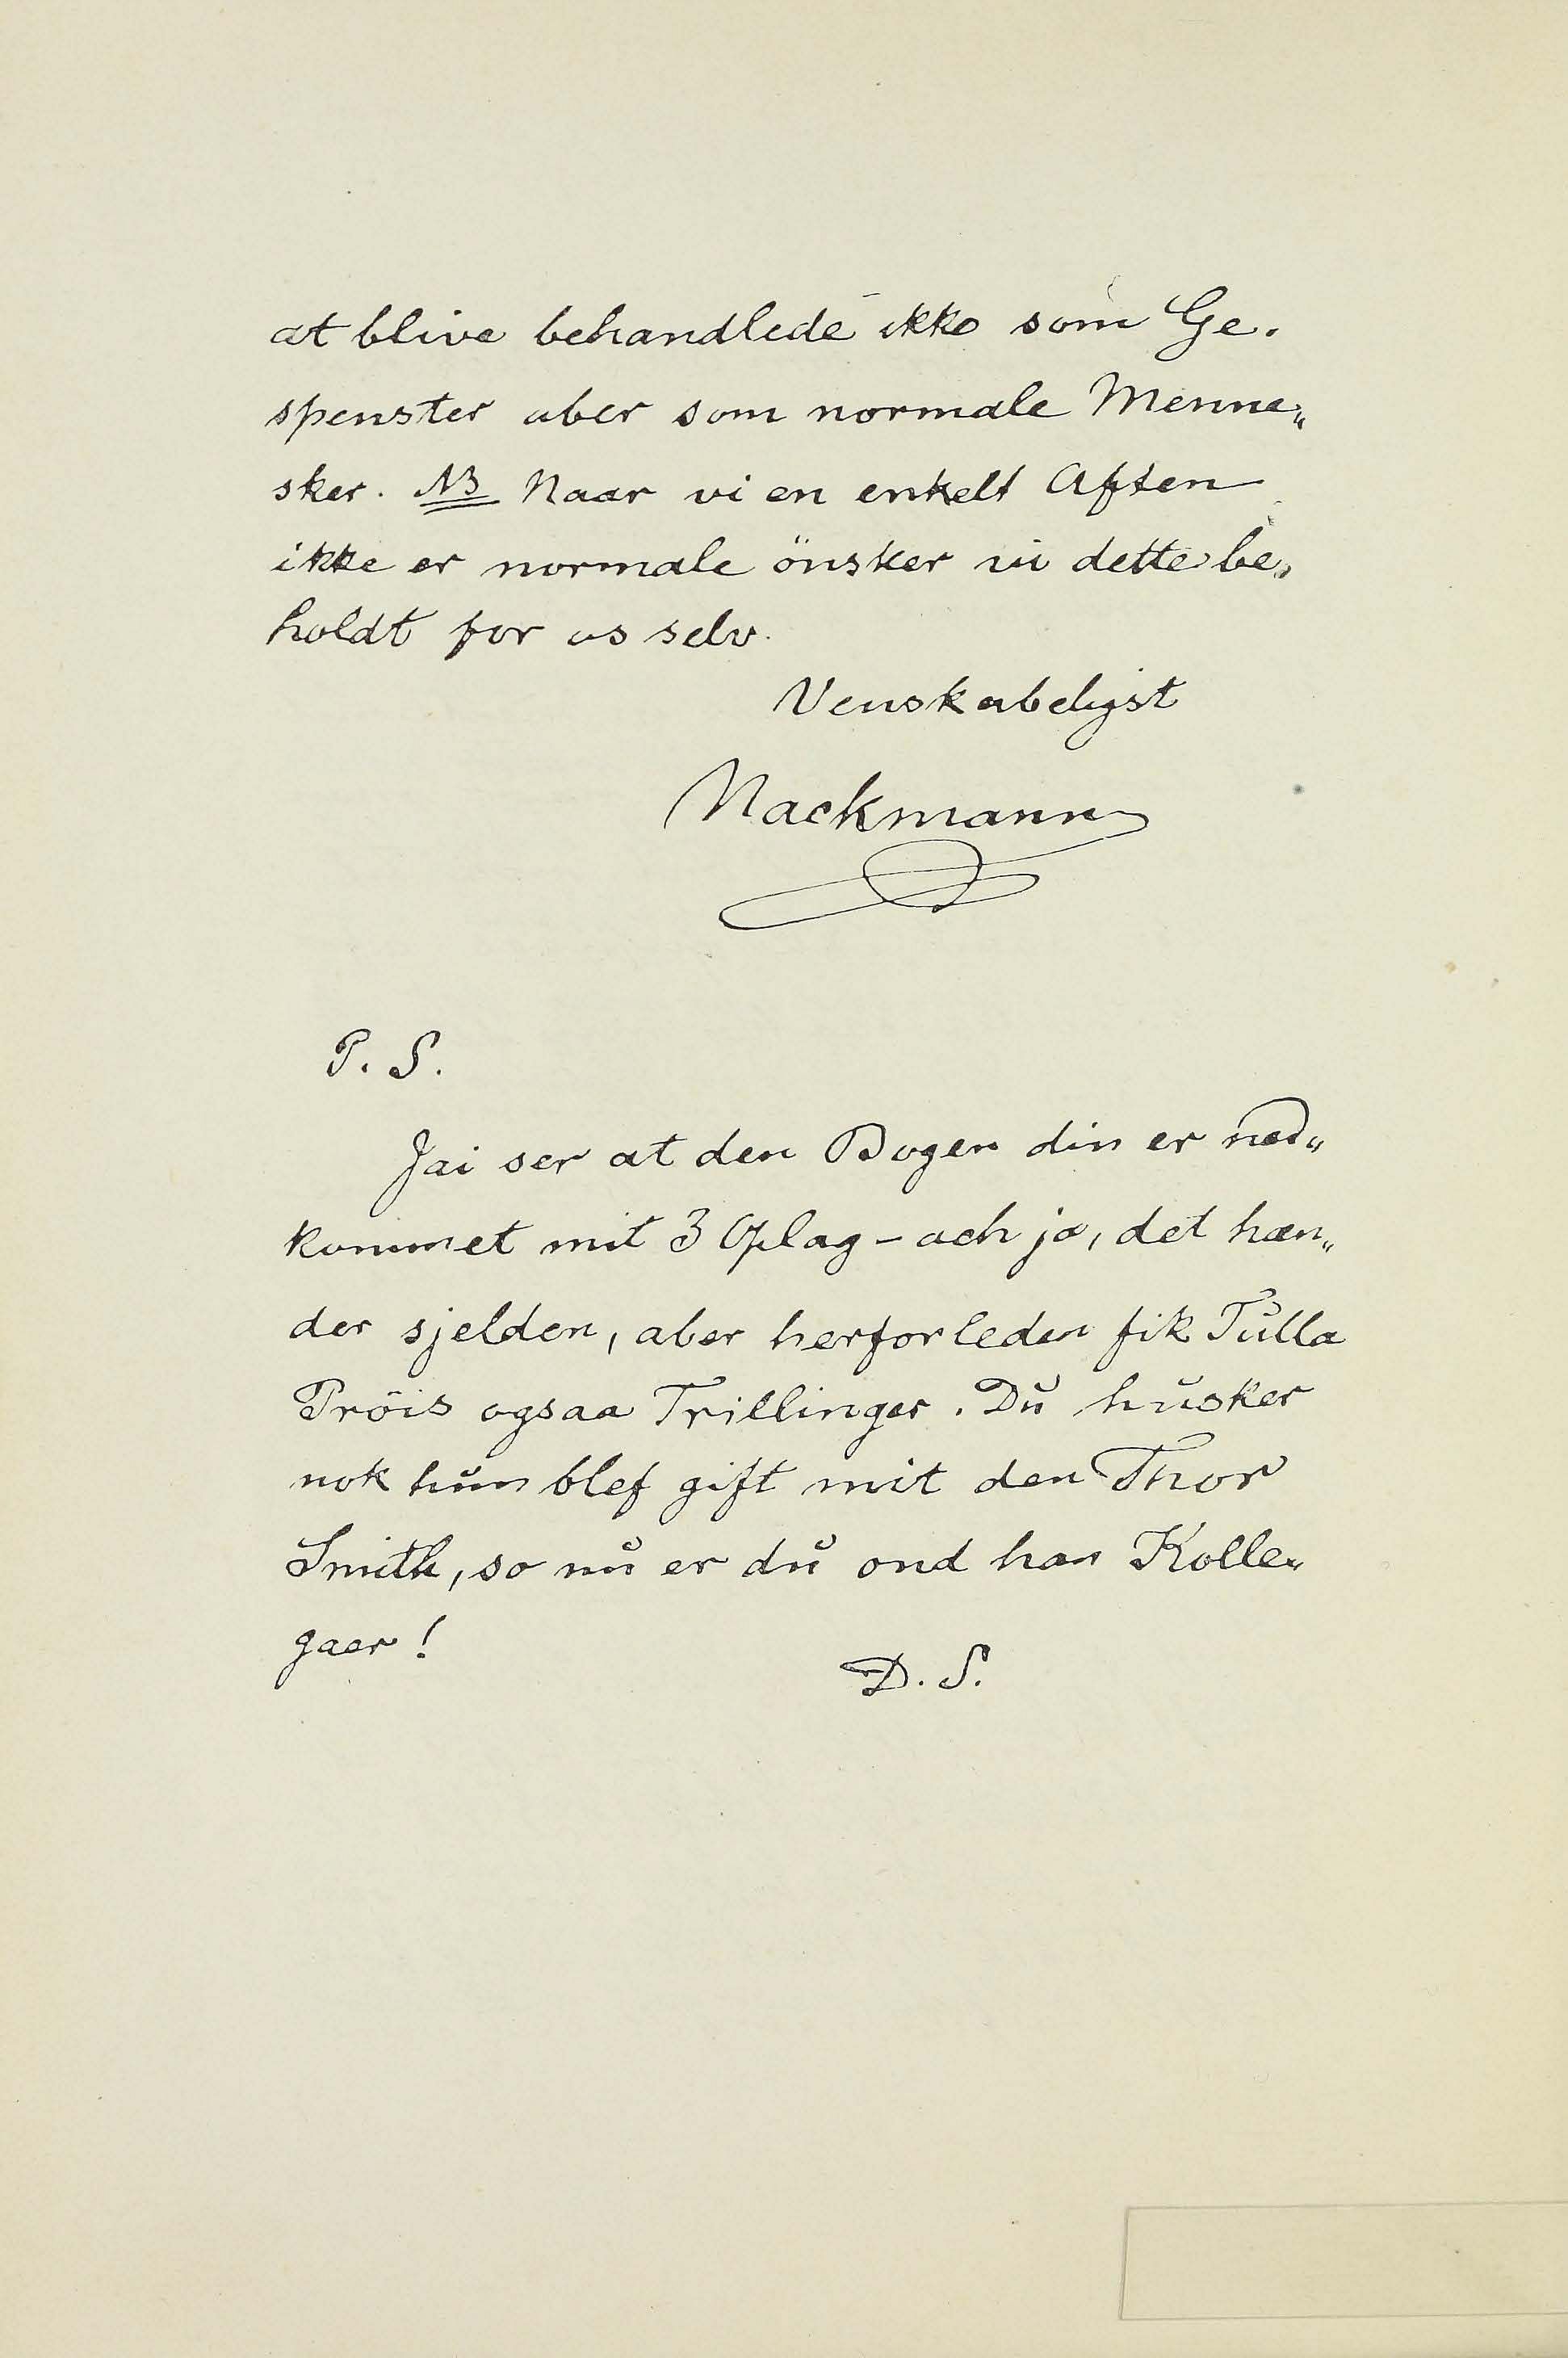 at blive behandlede ikke som Ge-
spenster aber som normale Menne„
sker. NB Naar vi en enkelt Aften
ikke er normale önsker vi dette be„
holdt for os selv.
Venskabeligst
Nackmann
P. S.
Jai ser at den Bogen din er ned„
kommet mit 3 Oplag – ach ja, det hæn„
der sjelden, aber herforleden fik Tulla
Pröis ogsaa Trillinger. Du husker
nok hun blef gift mit den Thor
Smith, so nu er du ond han Kolle„
gaer!
D. S.